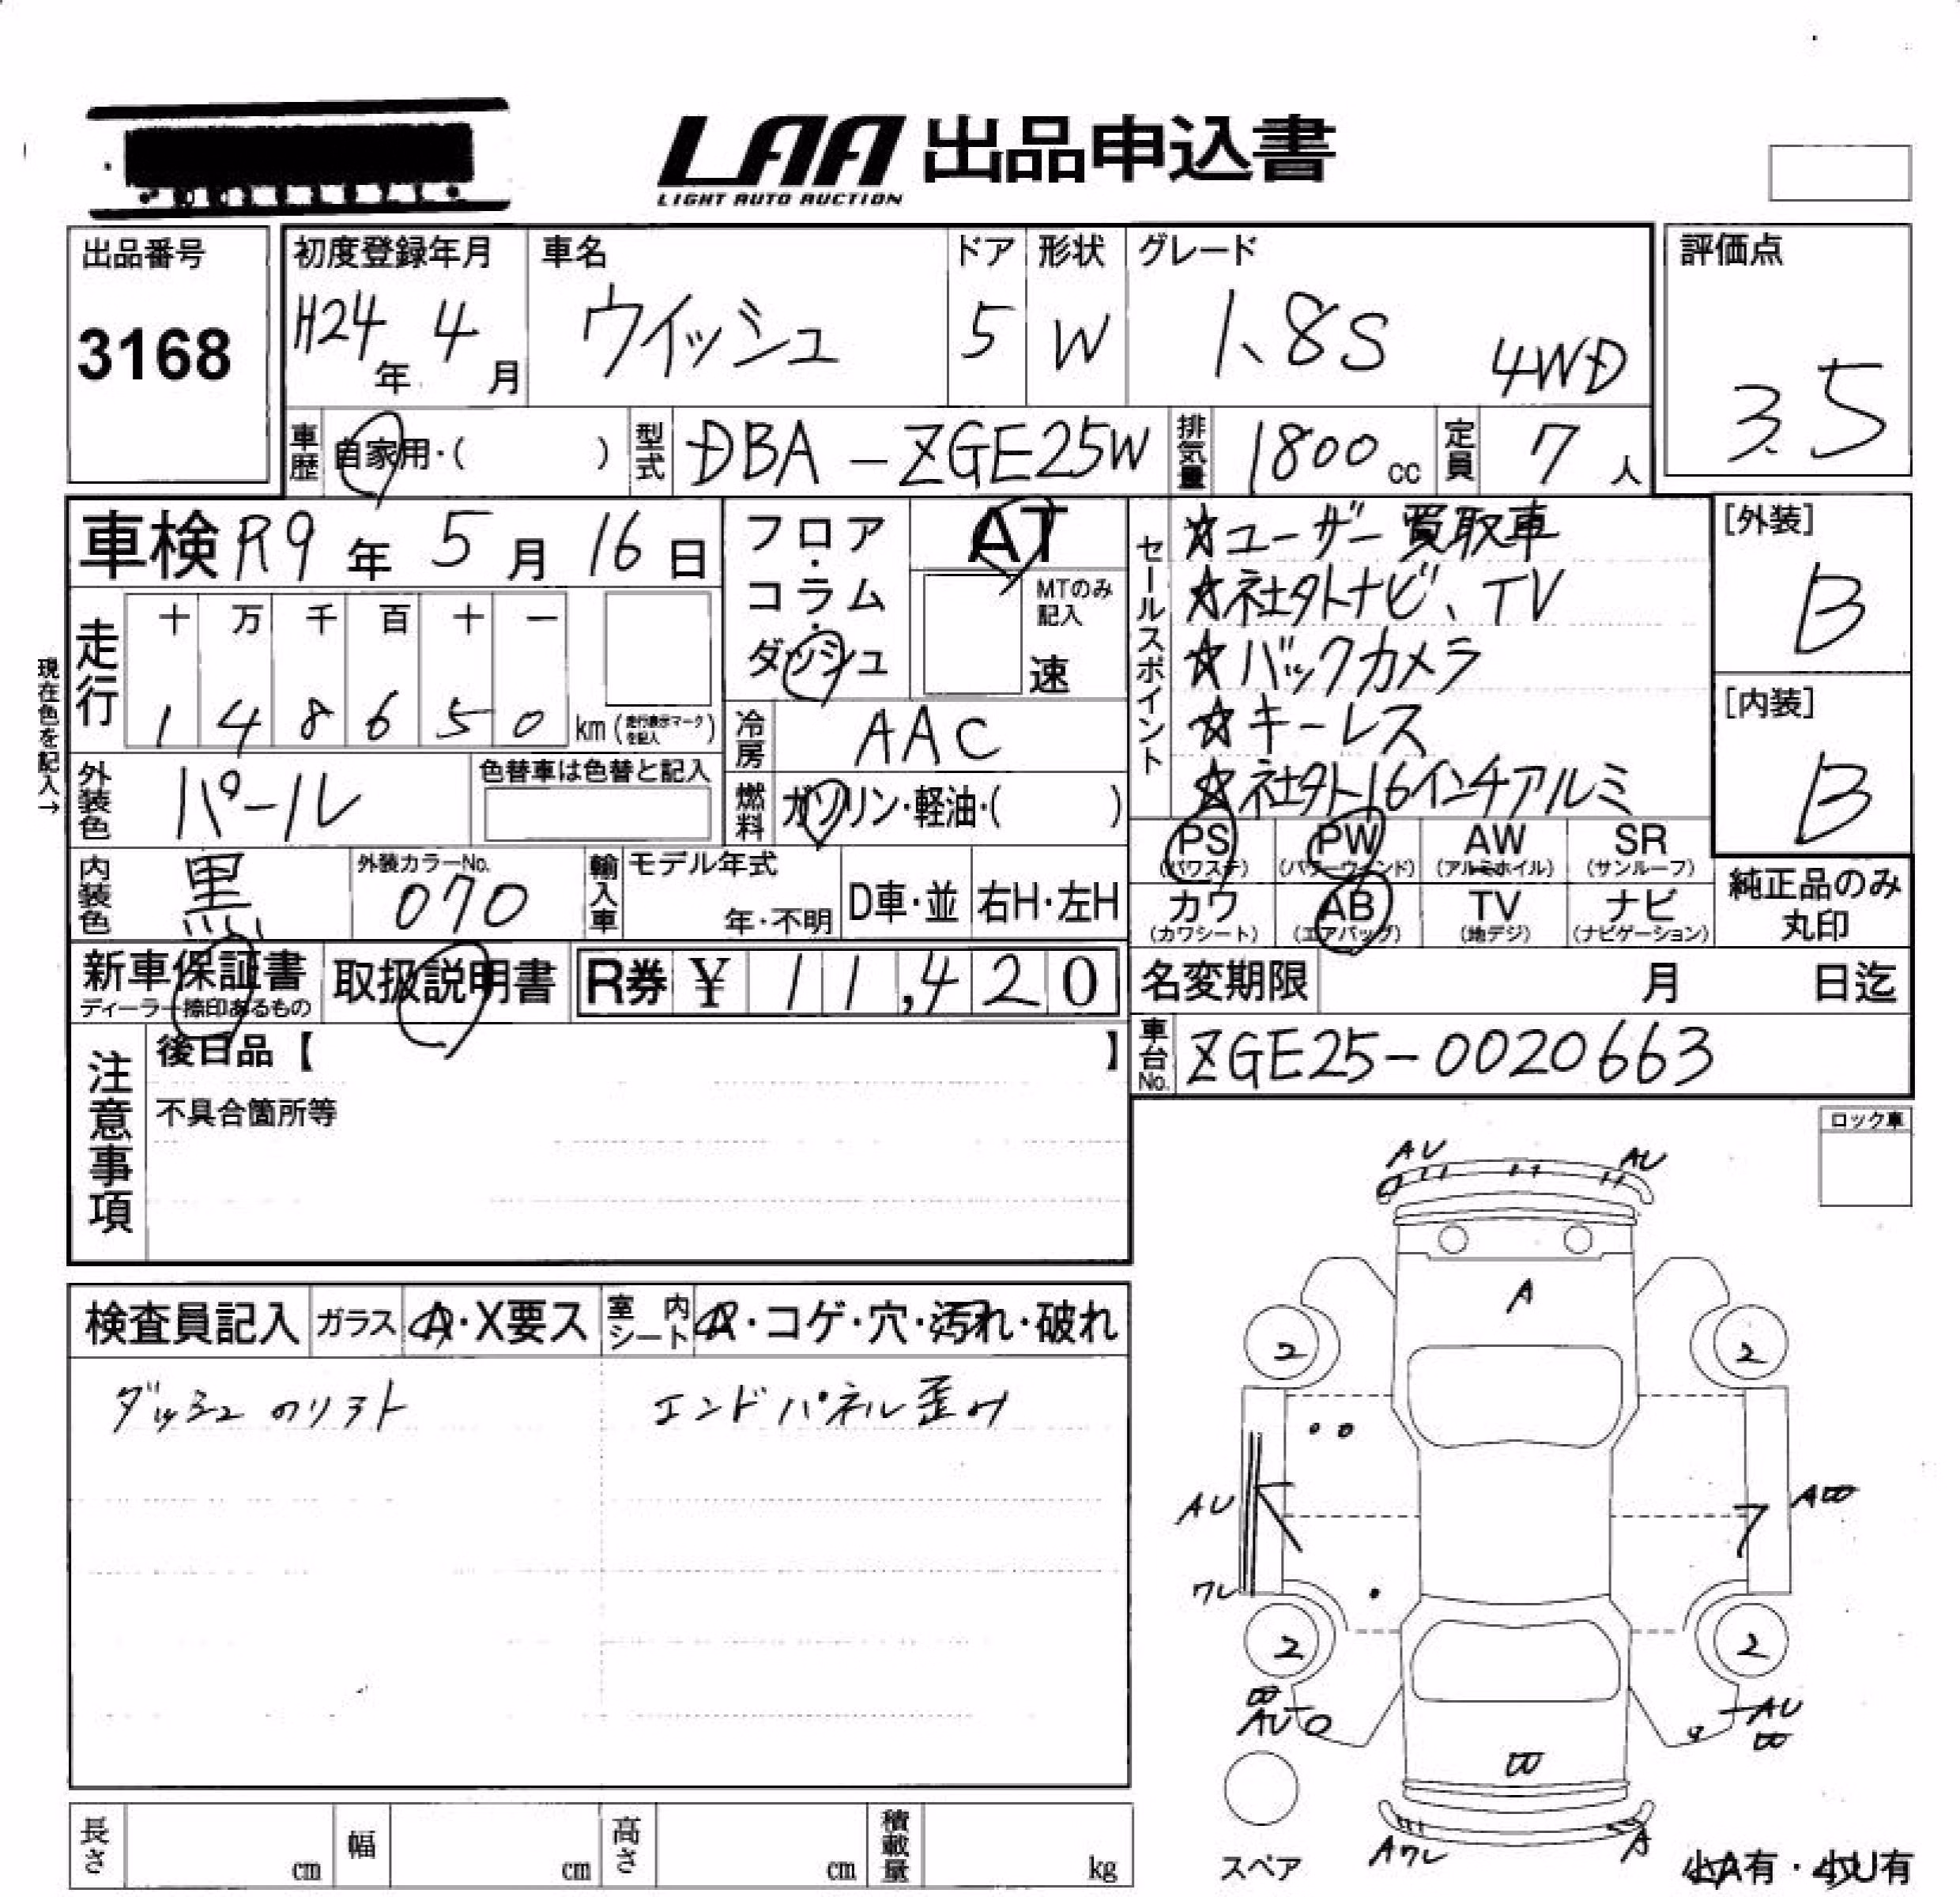 LAA 出品申込書
LIGHT AUTO AUCTION
出品番号
3168
初度登録年月
H24年 4月
車名
ウイッシュ
ドア
5
形状
W
グレード
1.8S 4WD
評価点
3.5
車歴 自家用・( )
型式 DBA-ZGE25W
排気量 1800cc
定員 7人
車検 R9年 5月 16日
走行
十 万 千 百 十 一
1 4 8 6 5 0 km (走行表示マークを記入)
現在色を記入→
外装色 パール
色替車は色替と記入
内装色 黒
外装カラーNo. 070
フロア・コラム・ダッシュ
AT
MTのみ記入
速
冷房 AAC
燃料 ガソリン・軽油・( )
輸入車 モデル年式
年・不明
D車・並
右H・左H
セールスポイント
☆ユーザー買取車
☆社外ナビ、TV
☆バックカメラ
☆キーレス
☆社外16インチアルミ
[外装]
B
[内装]
B
PS (パワステ)
PW (パワーウィンド)
AW (アルミホイル)
SR (サンルーフ)
カワ (カワシート)
AB (エアバッグ)
TV (地デジ)
ナビ (ナビゲーション)
純正品のみ
丸印
新車保証書
ディーラー捺印あるもの
取扱説明書
R券 ¥ 11,420
名変期限 月 日迄
車台No. ZGE25-0020663
注意事項
後日品【 】
不具合箇所等
ロック車
検査員記入
ガラス A・X要ス
室内シート A・コゲ・穴・汚れ・破れ
ダッシュ のリフト
エンドパネル歪み
AU
AU
A
2
2
AU
ワレ
2
2
AU
AU
A
Aワレ
スペア
小A有・小U有
長さ cm
幅 cm
高さ cm
積載量 kg